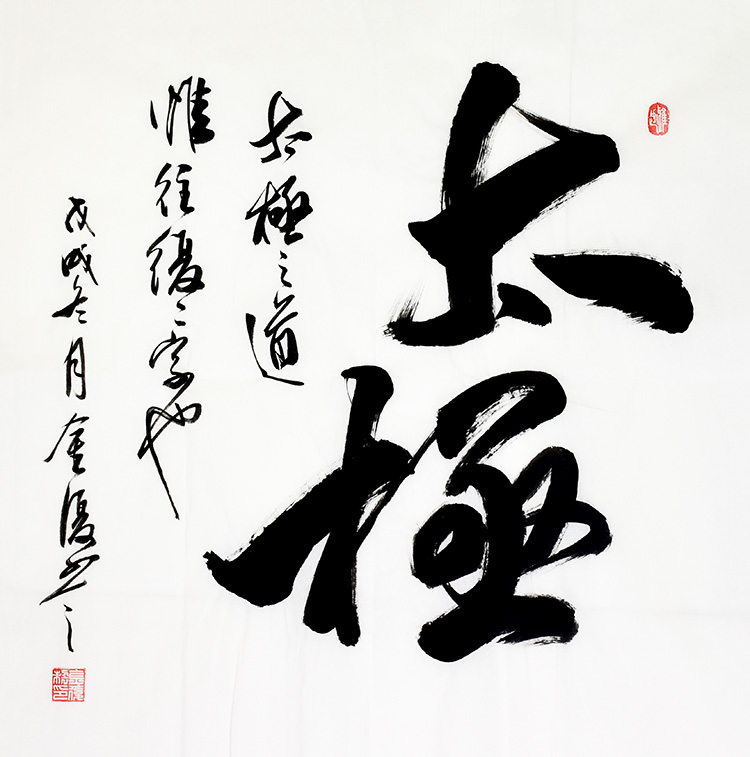 太極
太極之道
惟往復二字也
戊戌冬月金復书之